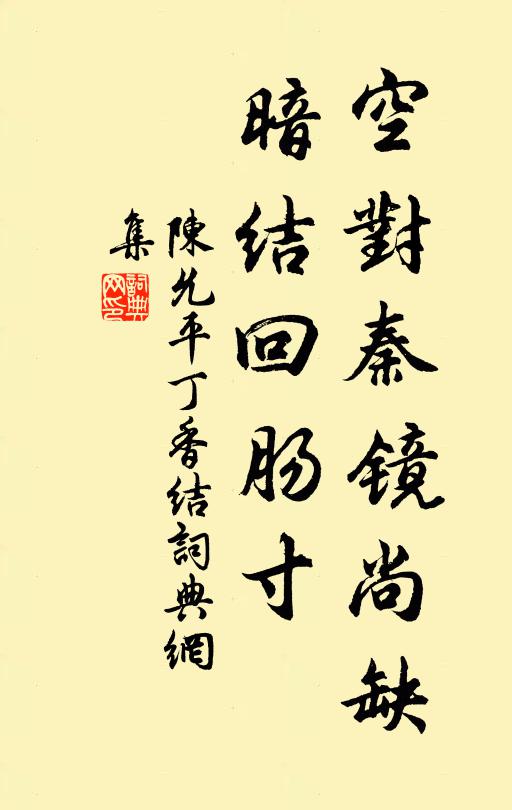 空對秦镜尚缺
暗结回肠寸
陳允平丁香结詞典網
集
詞典
网印